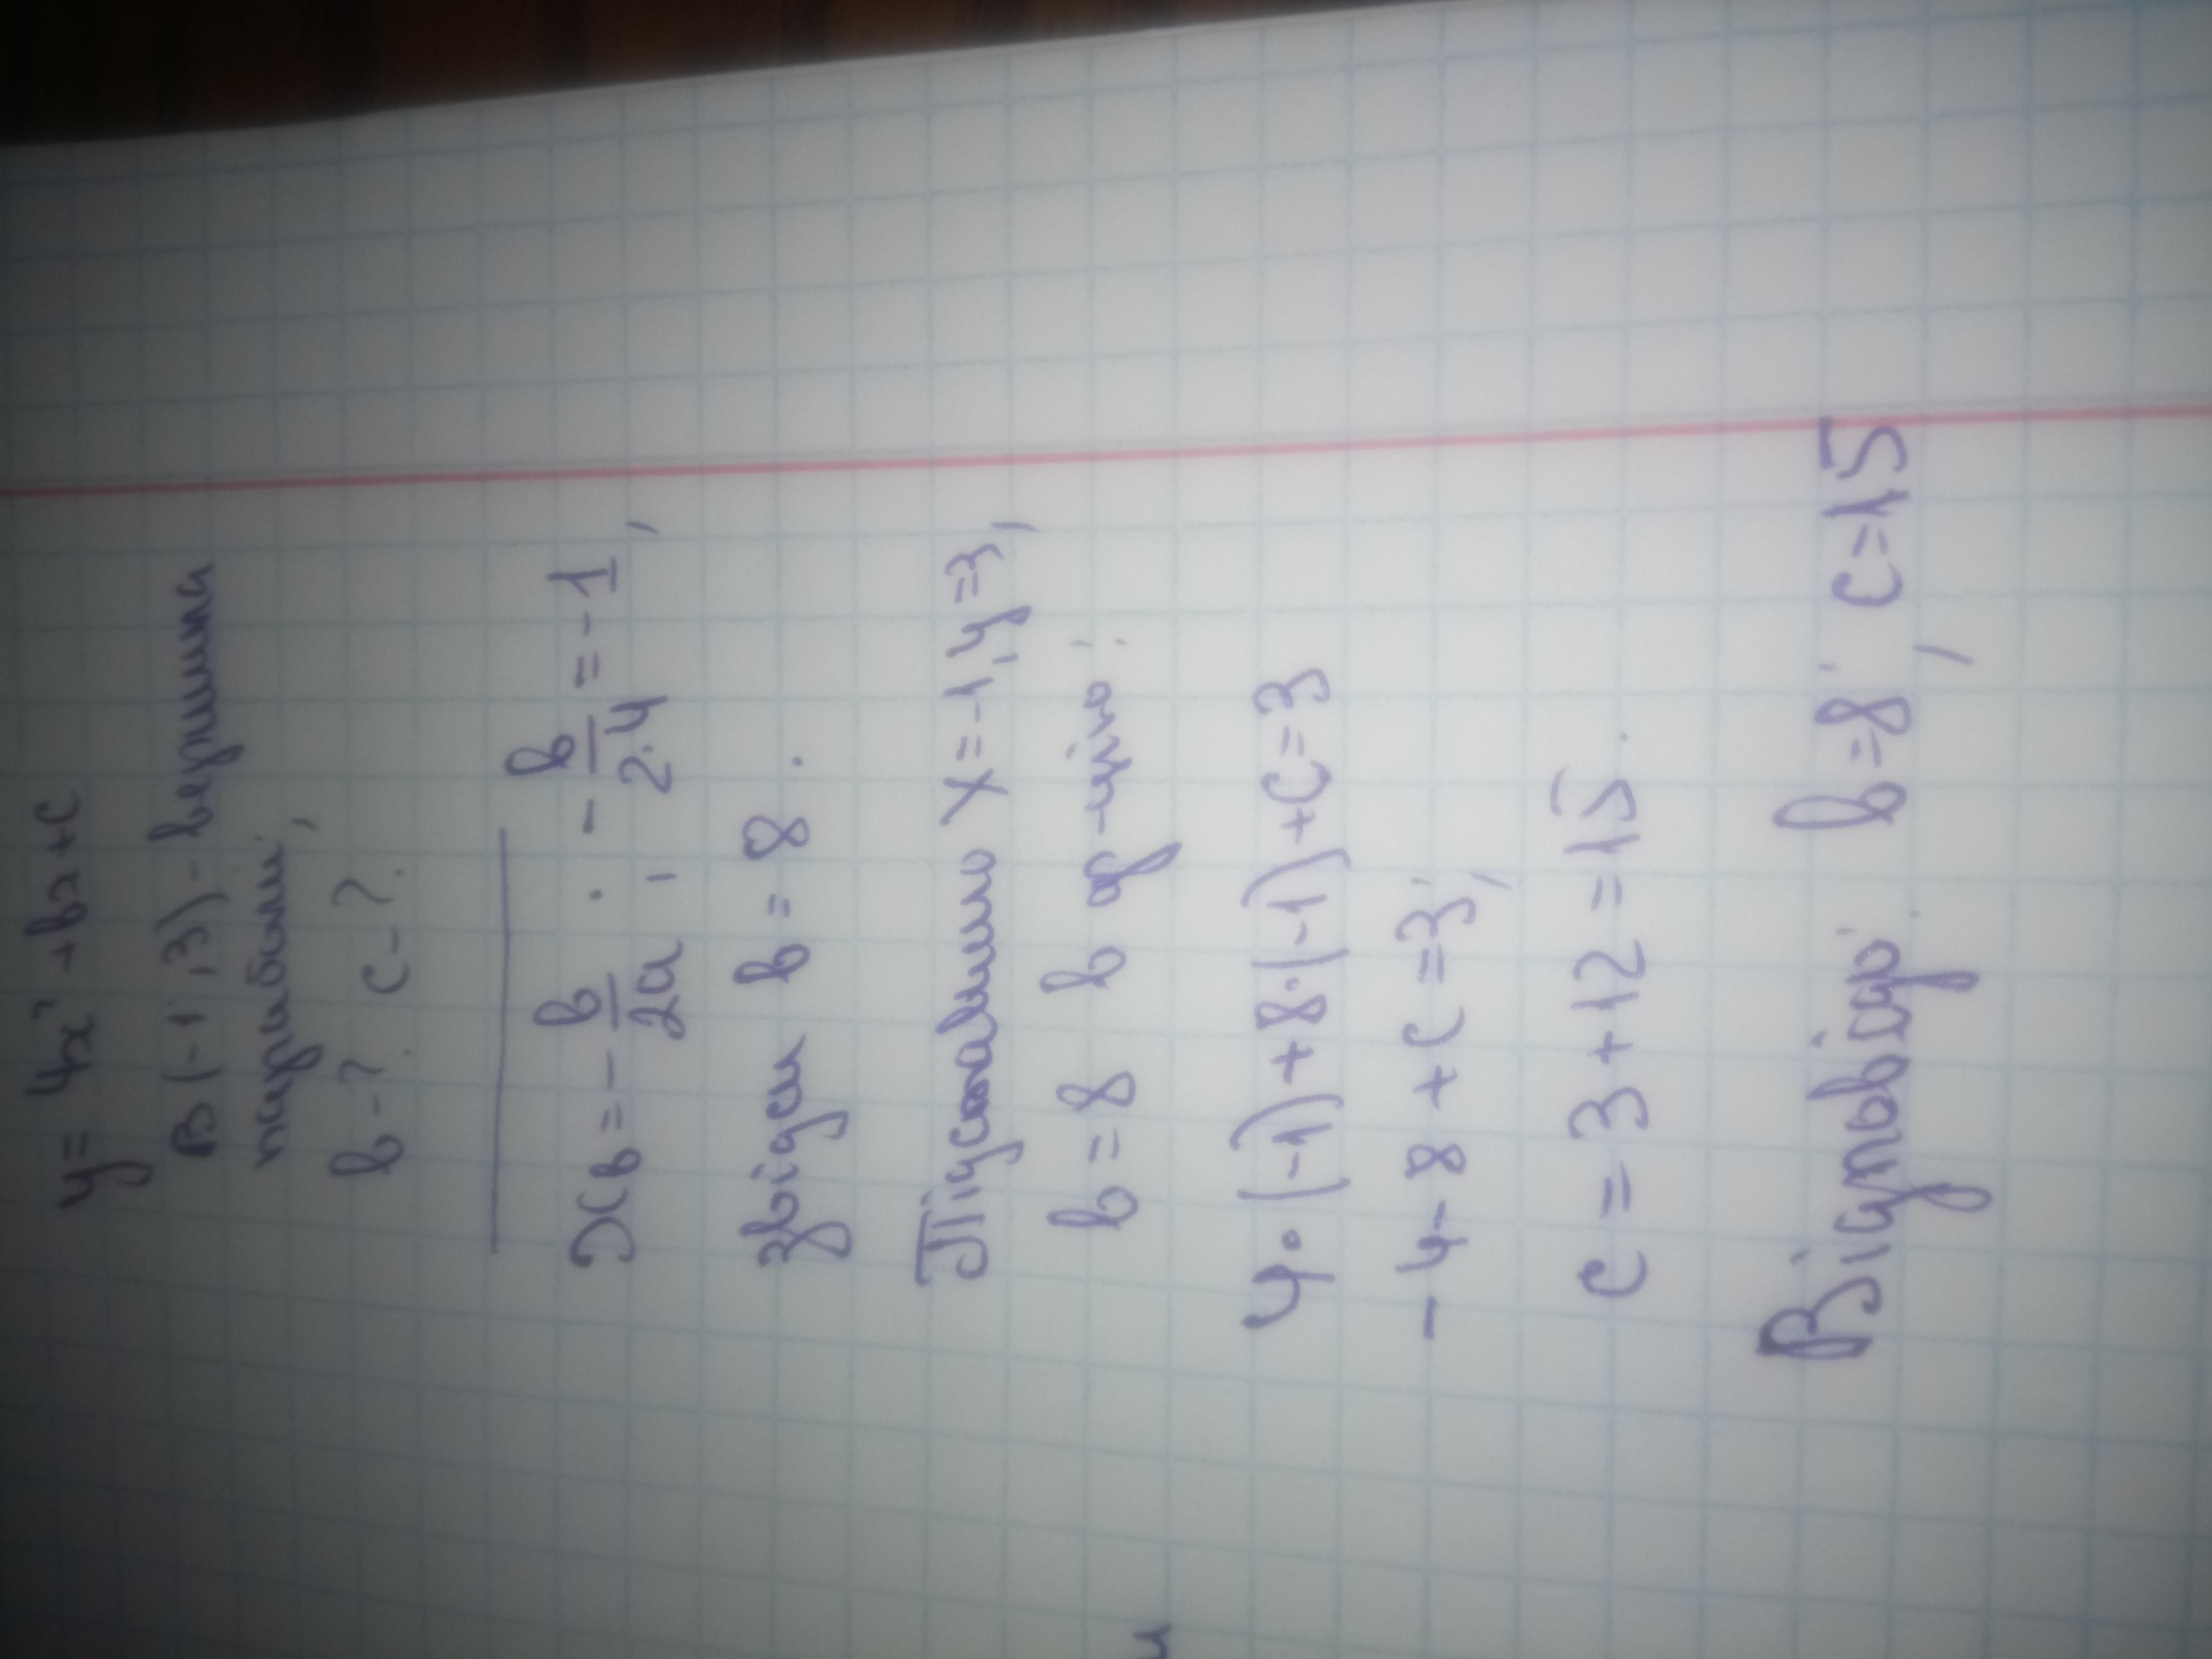 y = 4x² + bx + c
B (-1; 3) - вершина
параболи;
b - ? c - ?
xв = - b/2a; - b/2·4 = -1,
звідси b = 8.
Підставимо x = -1, y = 3,
b = 8 в ф-цію:
4·(-1) + 8·(-1) + c = 3
- 4 - 8 + c = 3;
c = 3 + 12 = 15.
Відповідь: b = 8; c = 15